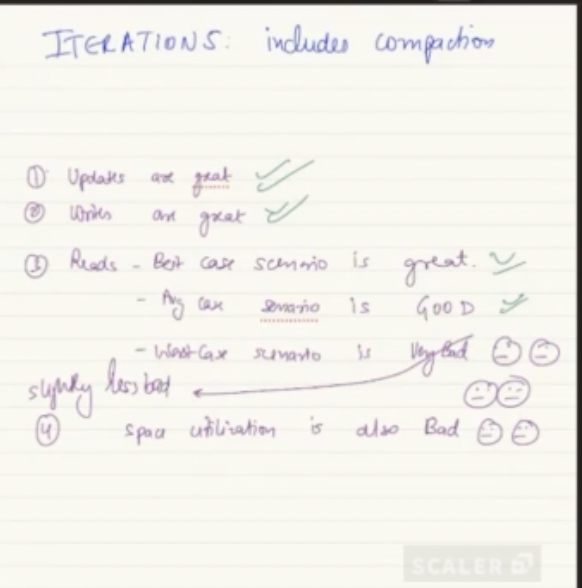 ITERATIONS: includes compaction
① Updates are great
② Writes are great
③ Reads - Best case scenario is great.
- Avg case scenario is GOOD
- Worst Case scenario is Very Bad
slightly less bad
④ space utilization is also Bad
SCALER